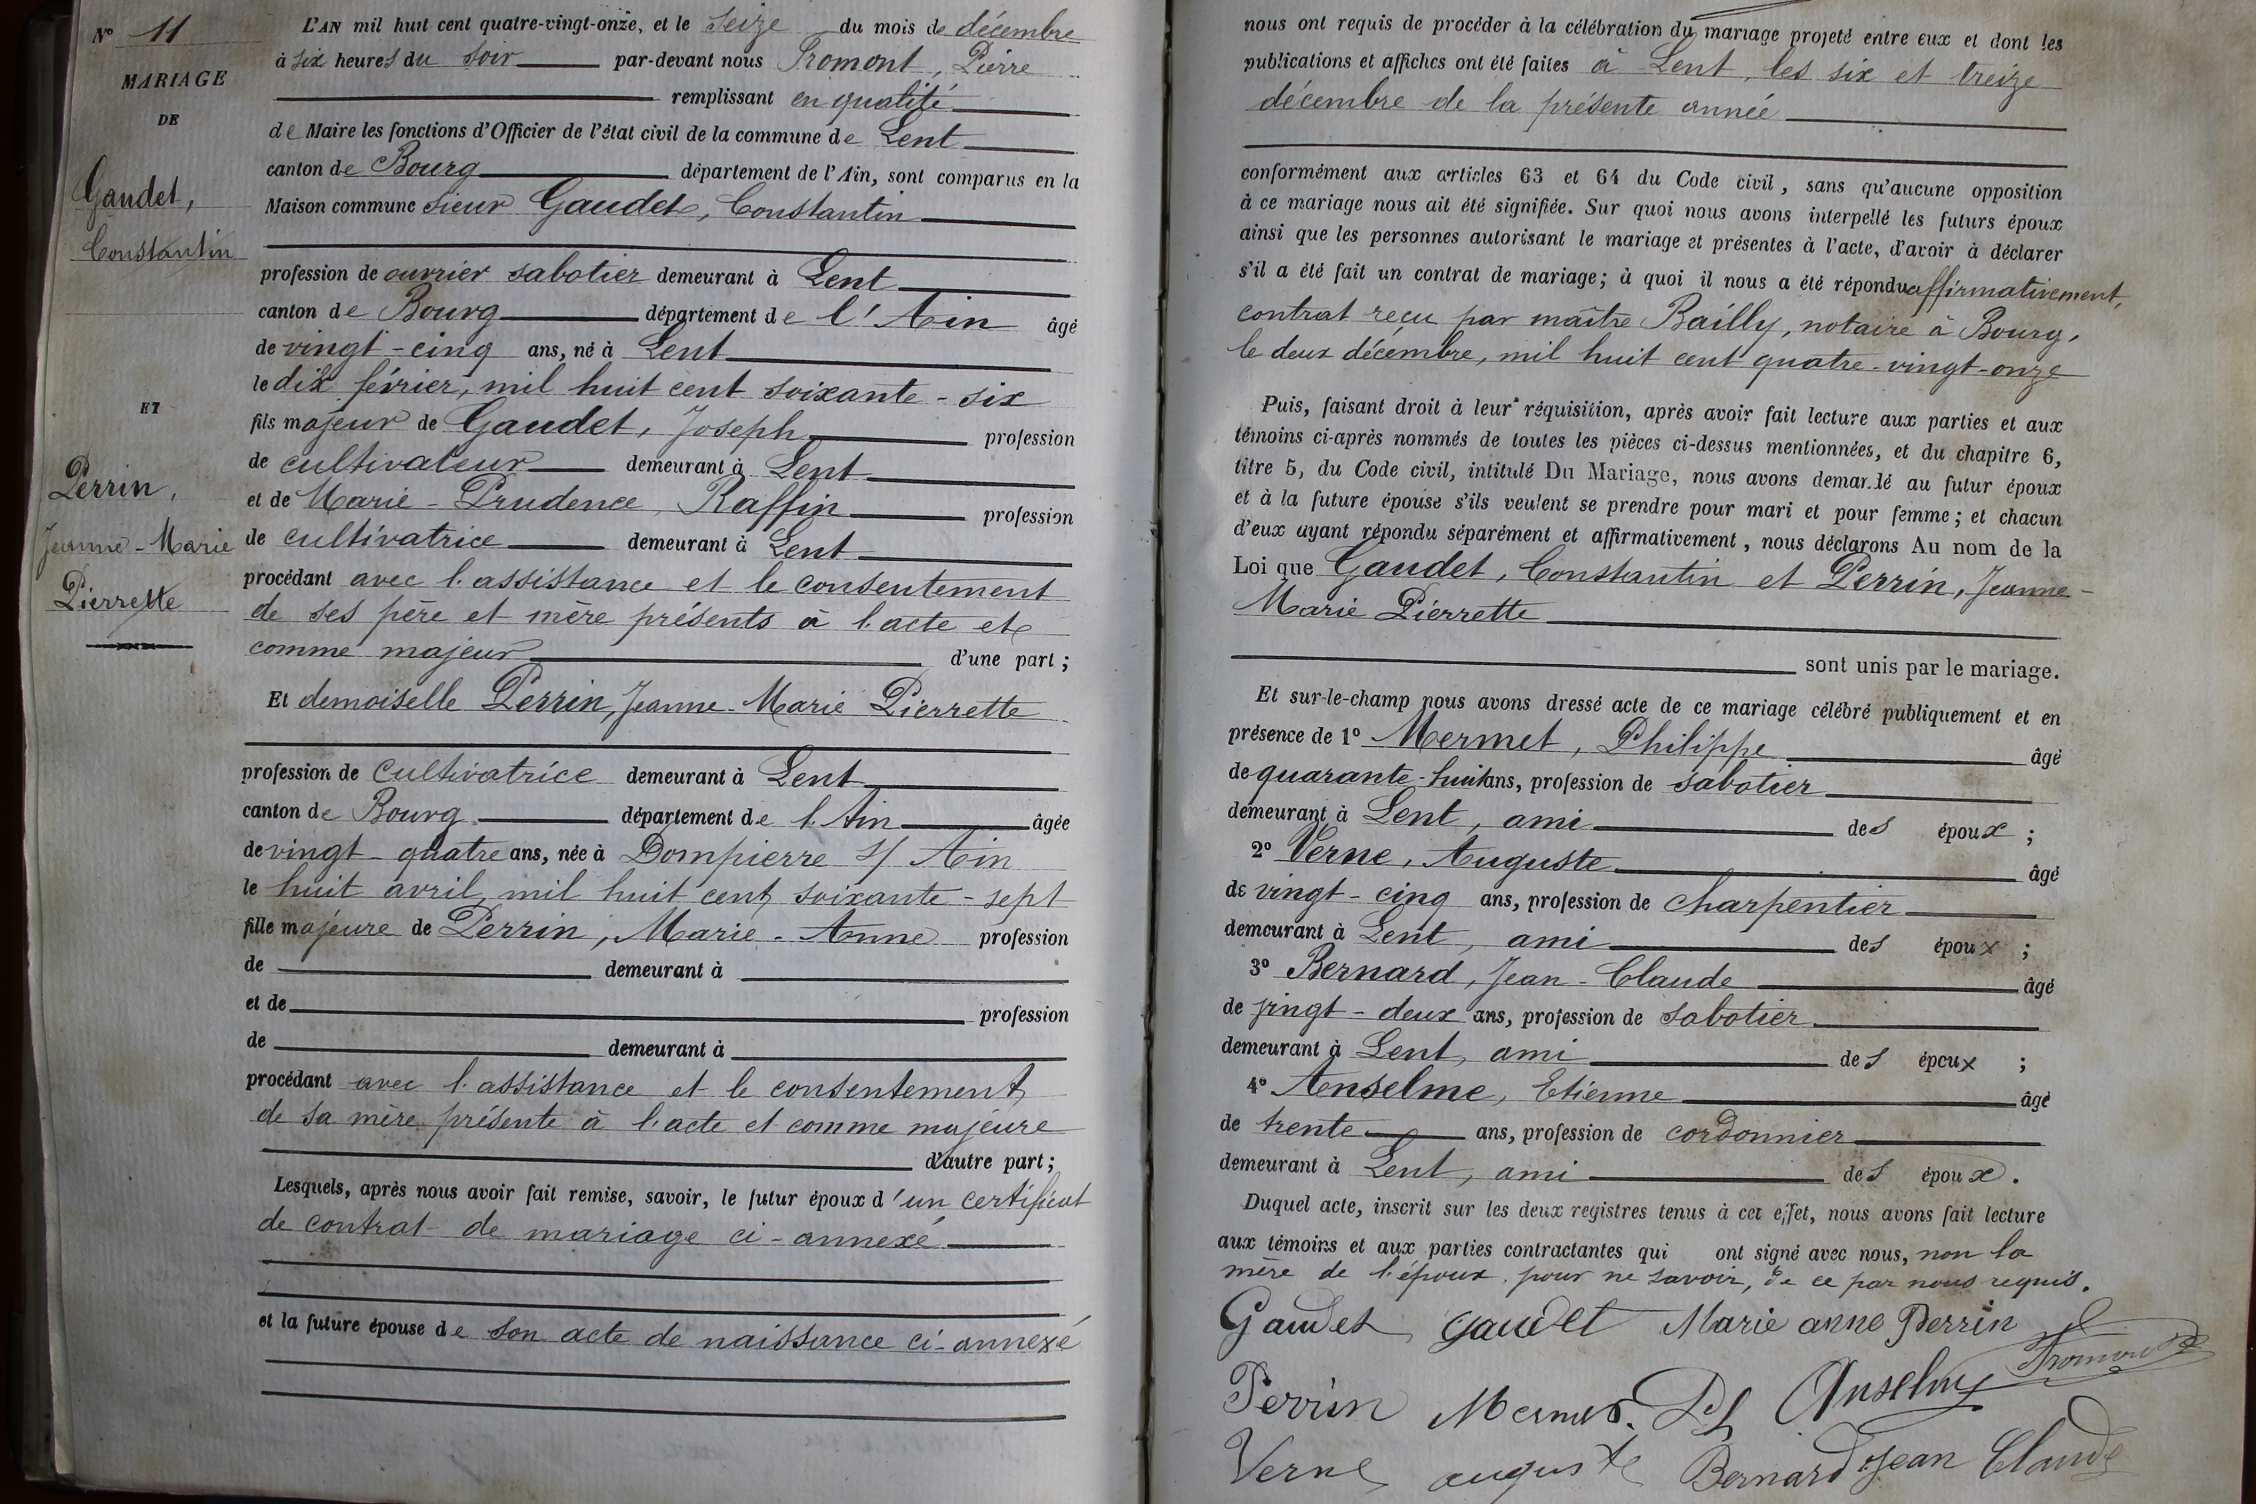 N° 11
MARIAGE
DE
Gaudet,
Constantin
ET
Perrin,
Jeanne-Marie
Pierrette
L'AN mil huit cent quatre-vingt-onze, et le seize du mois de décembre
à six heures du soir par-devant nous Promont, Pierre
remplissant en qualité
de Maire les fonctions d'Officier de l'état civil de la commune de Lent
canton de Bourg département de l'Ain, sont comparus en la
Maison commune sieur Gaudet, Constantin
profession de ouvrier sabotier demeurant à Lent
canton de Bourg département de l'Ain âgé
de vingt-cinq ans, né à Lent
le dix février, mil huit cent soixante-six
fils majeur de Gaudet, Joseph profession
de cultivateur demeurant à Lent
et de Marie-Prudence Raffin profession
de cultivatrice demeurant à Lent
procédant avec l'assistance et le consentement
de ses père et mère présents à l'acte et
comme majeur d'une part;
Et demoiselle Perrin, Jeanne-Marie Pierrette
profession de cultivatrice demeurant à Lent
canton de Bourg département de l'Ain âgée
de vingt-quatre ans, née à Dompierre s/ Ain
le huit avril, mil huit cent soixante-sept
fille majeure de Perrin, Marie-Anne profession
de demeurant à
et de profession
de demeurant à
procédant avec l'assistance et le consentement
de sa mère présente à l'acte et comme majeure
d'autre part;
Lesquels, après nous avoir fait remise, savoir, le futur époux d'un certificat
de contrat de mariage ci-annexé
et la future épouse de son acte de naissance ci-annexé
nous ont requis de procéder à la célébration du mariage projeté entre eux et dont les
publications et affiches ont été faites à Lent, les six et treize
décembre de la présente année
conformément aux articles 63 et 64 du Code civil, sans qu'aucune opposition
à ce mariage nous ait été signifiée. Sur quoi nous avons interpellé les futurs époux
ainsi que les personnes autorisant le mariage et présentes à l'acte, d'avoir à déclarer
s'il a été fait un contrat de mariage; à quoi il nous a été répondu affirmativement,
contrat reçu par maître Bailly, notaire à Bourg,
le deux décembre, mil huit cent quatre-vingt-onze
Puis, faisant droit à leur réquisition, après avoir fait lecture aux parties et aux
témoins ci-après nommés de toutes les pièces ci-dessus mentionnées, et du chapitre 6,
titre 5, du Code civil, intitulé Du Mariage, nous avons demandé au futur époux
et à la future épouse s'ils veulent se prendre pour mari et pour femme; et chacun
d'eux ayant répondu séparément et affirmativement, nous déclarons Au nom de la
Loi que Gaudet, Constantin et Perrin, Jeanne-
Marie Pierrette
sont unis par le mariage.
Et sur-le-champ nous avons dressé acte de ce mariage célébré publiquement et en
présence de 1° Mermet, Philippe âgé
de quarante-huit ans, profession de sabotier
demeurant à Lent, ami des époux;
2° Verne, Auguste âgé
de vingt-cinq ans, profession de charpentier
demeurant à Lent, ami des époux;
3° Bernard, Jean-Claude âgé
de vingt-deux ans, profession de sabotier
demeurant à Lent, ami des époux;
4° Anselme, Etienne âgé
de trente ans, profession de cordonnier
demeurant à Lent, ami des époux.
Duquel acte, inscrit sur les deux registres tenus à cet effet, nous avons fait lecture
aux témoins et aux parties contractantes qui ont signé avec nous, non la
mère de l'époux pour ne savoir, de ce par nous requis.
Gaudet Gaudet Marie anne Perrin
Perrin Mermet Ph Anselme Promont
Verne auguste Bernard Jean Claude